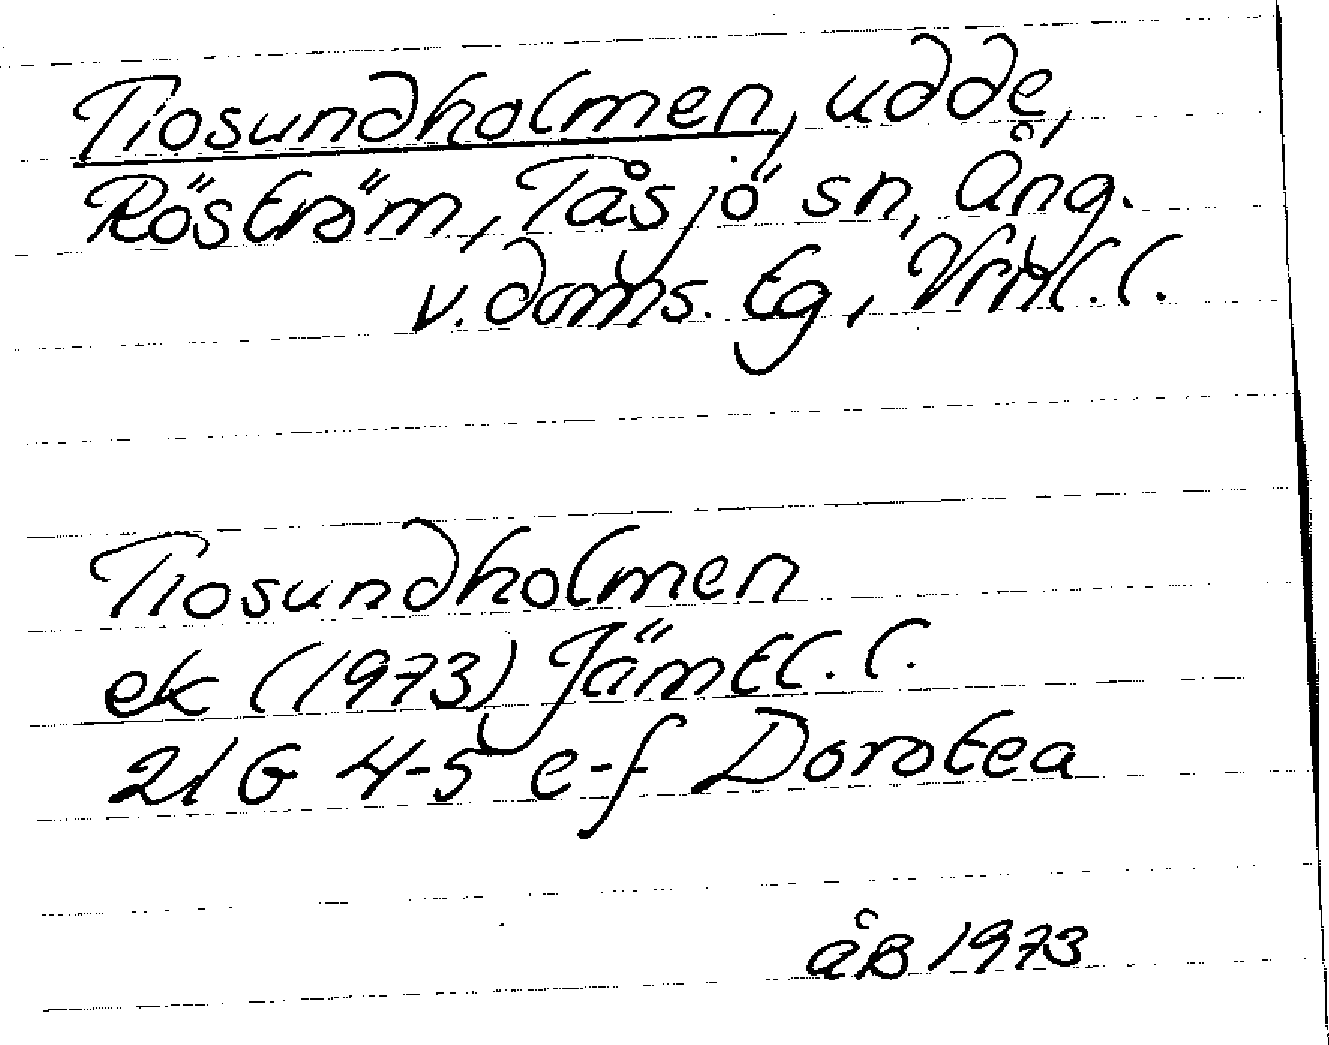 Tiosundholmen, udde,
Röström, Tåsjö sn, Ång.
v. doms. Eg, Vrnl. l.
Tiosundholmen
ek (1973) Jämtl. l.
21 G 4-5 e-f Dorotea
åB 1973